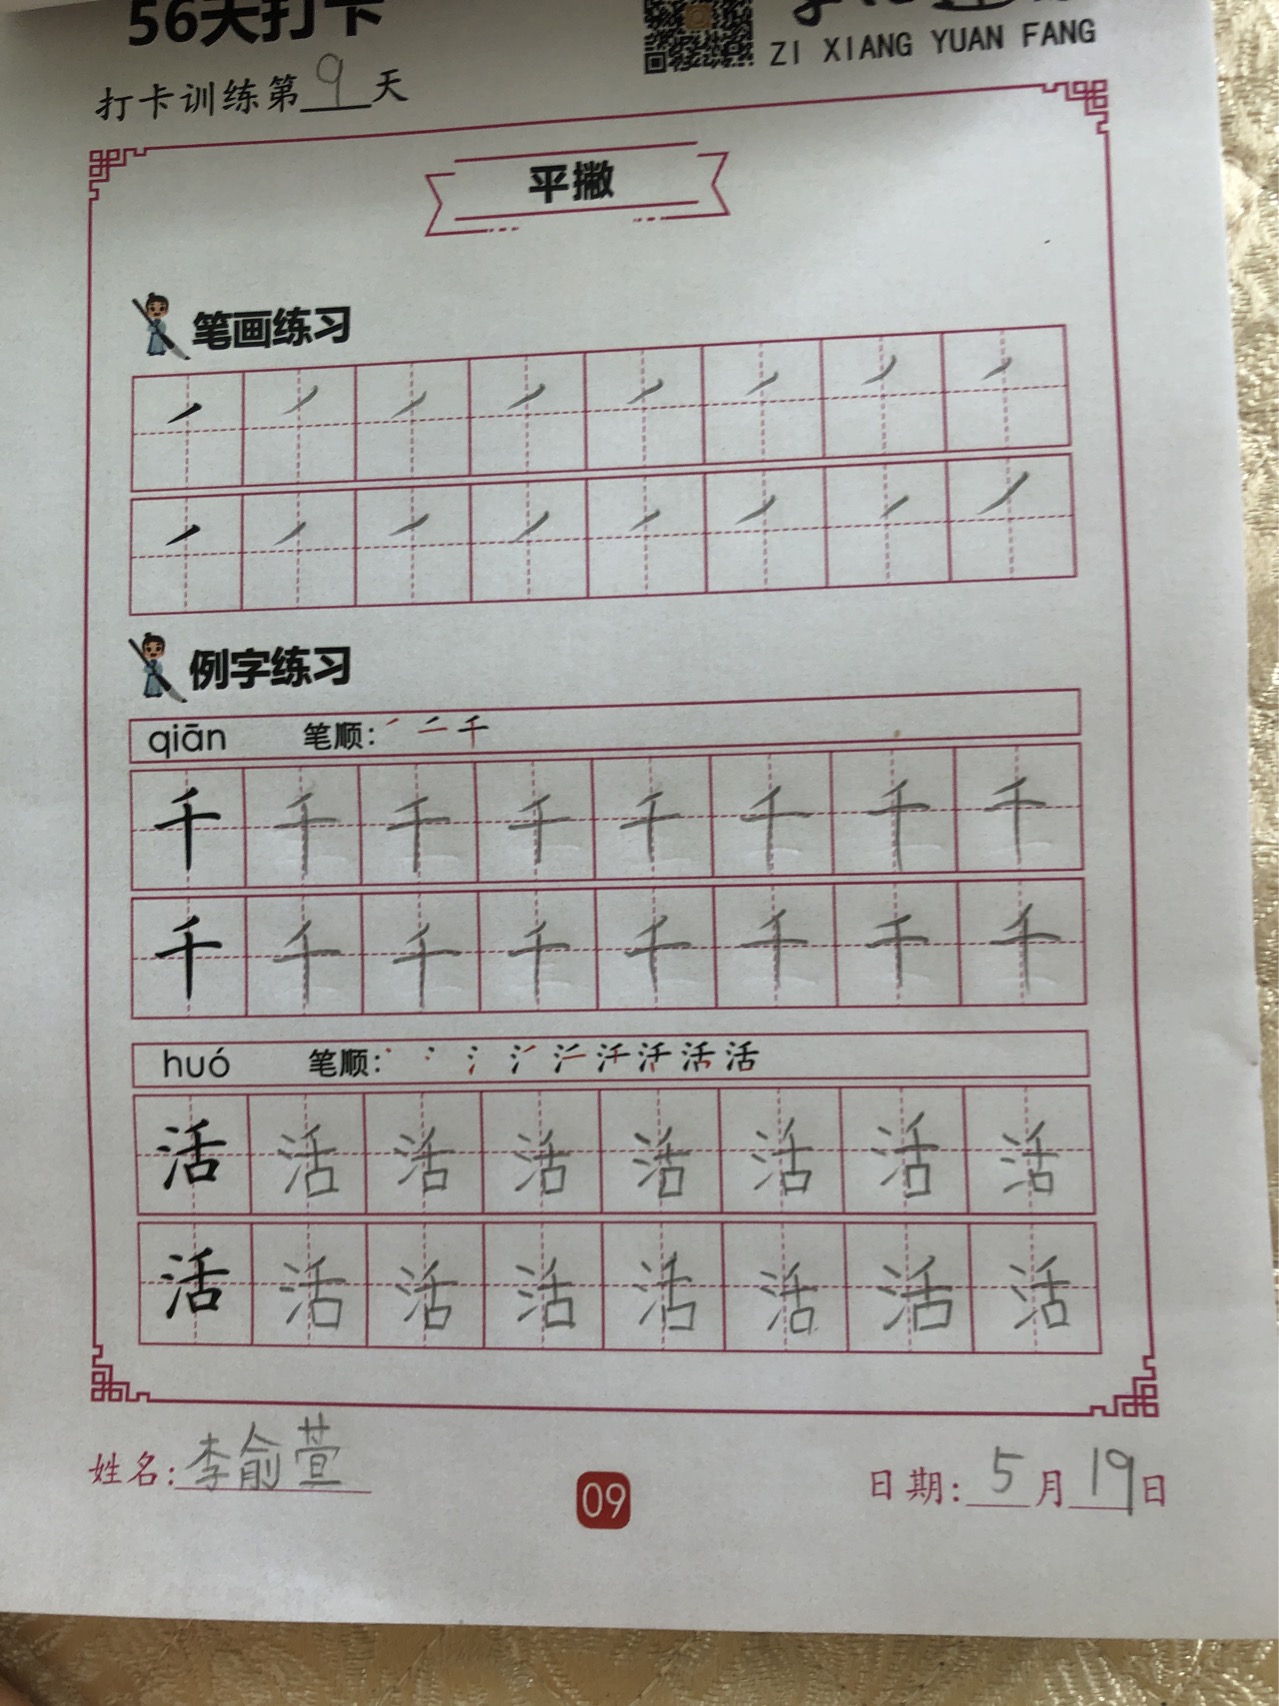 56天打卡
ZI XIANG YUAN FANG
打卡训练第9天
平撇
笔画练习
例字练习
qiān 笔顺：
千 千 千 千 千 千 千 千
千 千 千 千 千 千 千 千
huó 笔顺： 活
活 活 活 活 活 活 活 活
活 活 活 活 活 活 活 活
姓名：李俞萱
09
日期：5月19日